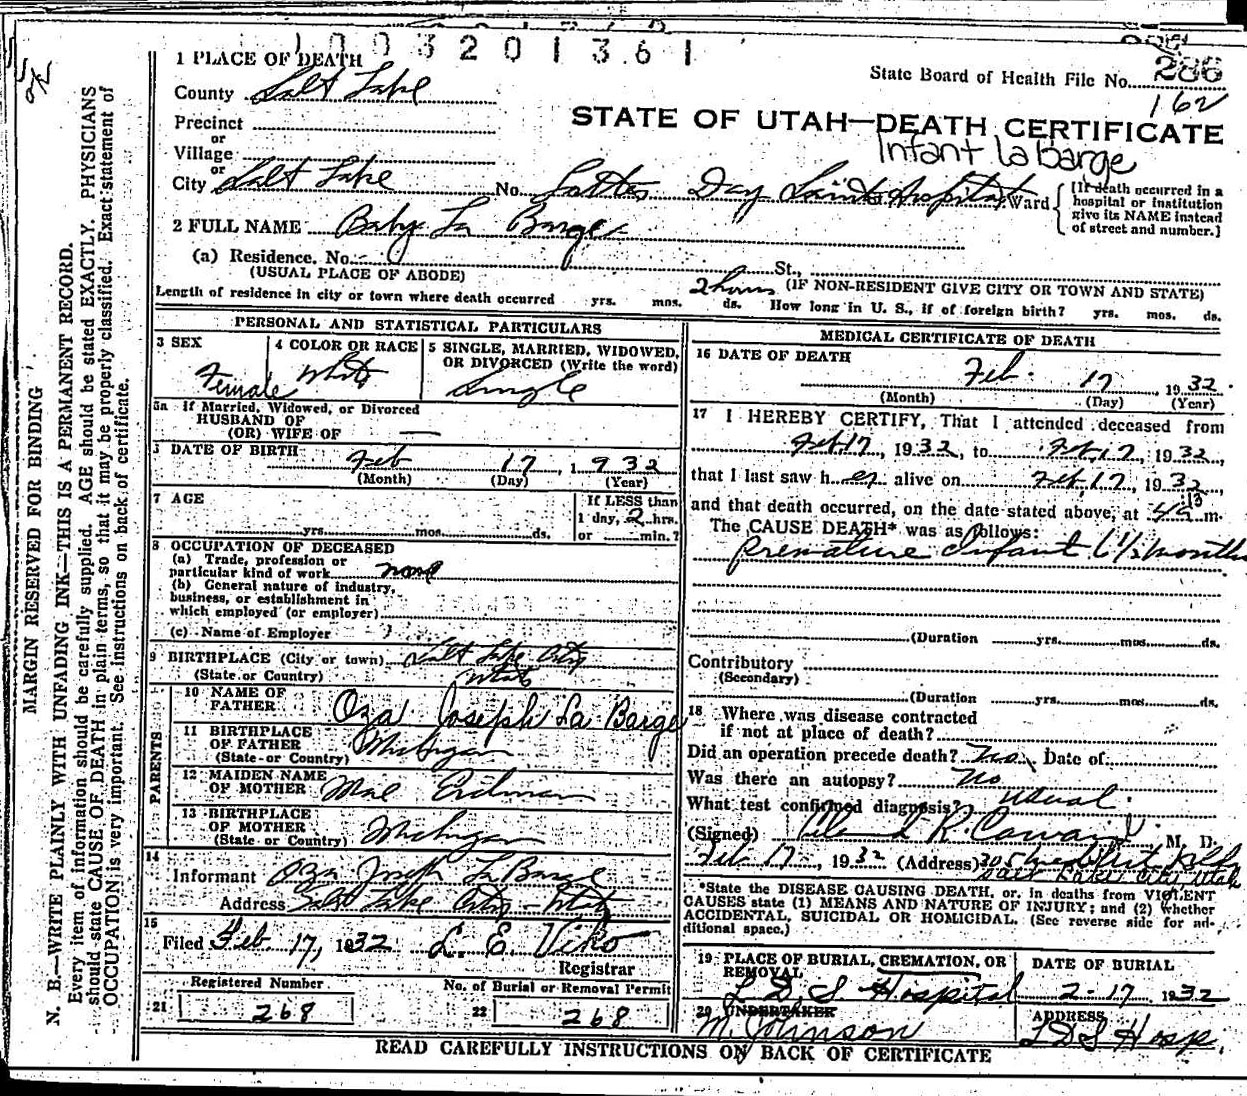 1003201361
1 PLACE OF DEATH
State Board of Health File No. 286
162
County Salt Lake
STATE OF UTAH—DEATH CERTIFICATE
Infant Labarge
Precinct
or
Village
or
City Salt Lake No. Latter Day Saints Hospital Ward
[If death occurred in a hospital or institution give its NAME instead of street and number.]
2 FULL NAME Baby La Barge
(a) Residence. No. St.,
(USUAL PLACE OF ABODE) (IF NON-RESIDENT GIVE CITY OR TOWN AND STATE)
Length of residence in city or town where death occurred yrs. mos. 2 hours ds. How long in U. S., if of foreign birth? yrs. mos. ds.
PERSONAL AND STATISTICAL PARTICULARS
3 SEX Female
4 COLOR OR RACE White
5 SINGLE, MARRIED, WIDOWED, OR DIVORCED (Write the word) Single
5a If Married, Widowed, or Divorced
HUSBAND OF
(OR) WIFE OF —
DATE OF BIRTH Feb 17, 1932
(Month) (Day) (Year)
7 AGE
yrs. mos. ds.
If LESS than
1 day, 2 hrs.
or min.?
8 OCCUPATION OF DECEASED
(a) Trade, profession or
particular kind of work none
(b) General nature of industry,
business, or establishment in
which employed (or employer)
(c) Name of Employer
9 BIRTHPLACE (City or town) Salt Lake City
(State or Country) Utah
PARENTS
10 NAME OF FATHER Oza Joseph La Barge
11 BIRTHPLACE OF FATHER Michigan
(State or Country)
12 MAIDEN NAME OF MOTHER Mae
13 BIRTHPLACE OF MOTHER Michigan
(State or Country)
14
Informant Oza Joseph La Barge
Address Salt Lake City - Utah
15
Filed Feb. 17, 1932 L. E. Viko
Registrar
Registered Number
21 268
No. of Burial or Removal Permit
22 268
MEDICAL CERTIFICATE OF DEATH
16 DATE OF DEATH
Feb. 17, 1932
(Month) (Day) (Year)
17 I HEREBY CERTIFY, That I attended deceased from
Feb 17, 1932, to Feb. 17, 1932,
that I last saw her alive on Feb, 17, 1932,
and that death occurred, on the date stated above, at m.
The CAUSE DEATH* was as follows:
premature infant 6 1/2 months
(Duration yrs. mos. ds.
Contributory
(Secondary)
(Duration yrs. mos. ds.
18 Where was disease contracted
if not at place of death?
Did an operation precede death? No. Date of
Was there an autopsy? No
What test confirmed diagnosis? usual.
(Signed) R. Cowan M. D.
Feb 17, 1932 (Address) 305 Medical Arts Bldg
Salt Lake City Utah
*State the DISEASE CAUSING DEATH, or, in deaths from VIOLENT
CAUSES state (1) MEANS AND NATURE OF INJURY; and (2) whether
ACCIDENTAL, SUICIDAL OR HOMICIDAL. (See reverse side for ad-
ditional space.)
19 PLACE OF BURIAL, CREMATION, OR REMOVAL
L D S Hospital
DATE OF BURIAL
2-17 1932
20 UNDERTAKER
M. Johnson
ADDRESS
LDS Hosp.
READ CAREFULLY INSTRUCTIONS ON BACK OF CERTIFICATE
MARGIN RESERVED FOR BINDING
N. B.—WRITE PLAINLY WITH UNFADING INK—THIS IS A PERMANENT RECORD.
Every item of information should be carefully supplied. AGE should be stated EXACTLY. PHYSICIANS
should state CAUSE OF DEATH in plain terms, so that it may be properly classified. Exact statement of
OCCUPATION is very important. See instructions on back of certificate.